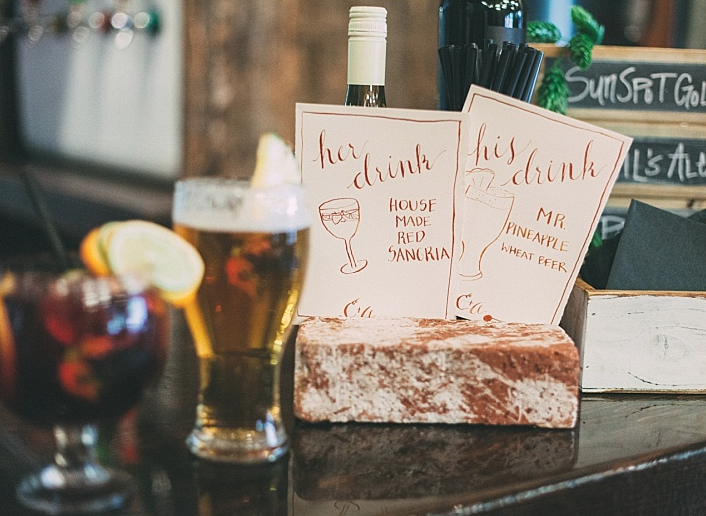 her
drink
HOUSE
MADE
RED
SANGRIA
his
drink
MR.
PINEAPPLE
WHEAT BEER
SUNSPOT